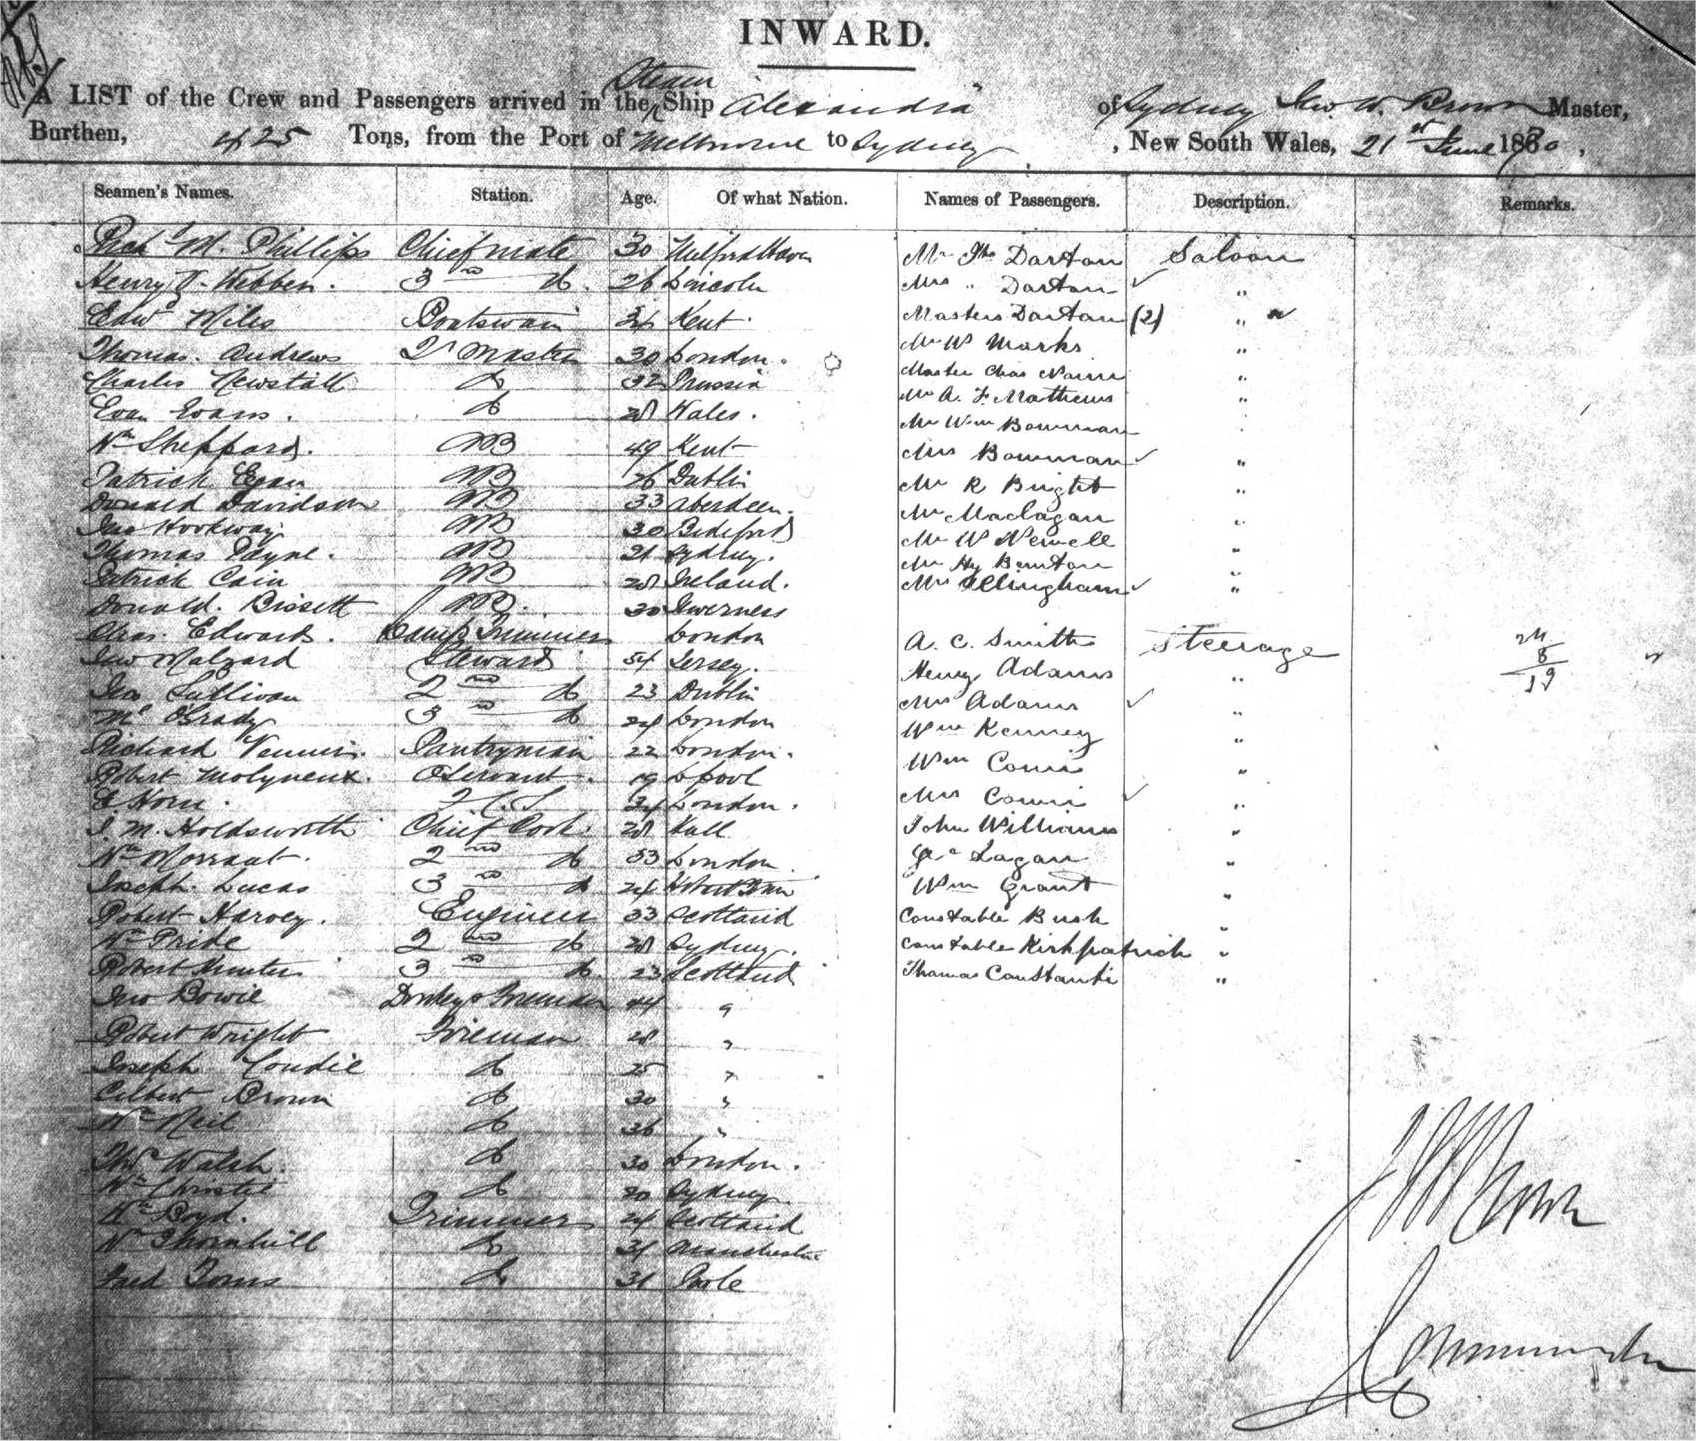 INWARD.
A LIST of the Crew and Passengers arrived in the Steam Ship "Alexandra" of Sydney Geo. W. Brown Master,
Burthen, 425 Tons, from the Port of Melbourne to Sydney, New South Wales, 21st June 18
Seamen's Names. Station. Age. Of what Nation. Names of Passengers. Description. Remarks.
Richd M. Phillips Chief mate 30 Milford Haven Mr Ths Darton Saloon
Henry Webben. 3rd do. 26 Lincoln Mrs " Darton "
Edwd Miles Boatswain 34 Kent Masters Darton (2) " "
Thomas. Andrews Qr Master 30 London. Mr W Marks "
Charles Newstall do 32 Prussia Master Chas "
Evan Evans. do 28 Wales. Mr A. F. Mathews "
Wm Sheppard. AB 49 Kent Mr Wm Bowman
Patrick Egan AB 26 Dublin Mrs Bowman "
Donald Davidson AB 33 Aberdeen. Mr R Bright "
Jno Hookway AB 30 Bideford Mr Maclagan "
Thomas Payne. AB 21 Sydney. Mr W Newell "
Patrick Cain AB 28 Ireland. Mr Hy Benton "
Donald. Bissett AB. 30 Inverness Mrs Ellingham "
Chas. Edwards. Lamp Trimmer London A. C. Smith Steerage
Jno Malzard Steward 54 Jersey. Henry Adams "
Jno Sullivan 2nd do 23 Dublin Mrs Adams "
Ml O'Grady 3rd do 24 London Wm Kenney "
Richard Pantryman 22 London. Wm "
Robert Molyneux. 19 Lpool Mrs "
E. Horn. 34 London. John Williams "
J. M. Holdsworth Chief Cook. 28 Hull Lagan "
Wm 2nd do 53 London Wm Grant "
Joseph. Lucas 3rd do 24 Hobart Town Constable Bush "
Robert Harvey. Engineer 33 Scotland Constable Kirkpatrick "
Wm Pride 2nd do 28 Sydney. Thomas Constanti "
Robert Hunter 3rd do. 23 Scotland
Jno Bowie Donkey Fireman 44 "
Robert Wright Fireman 28 "
Joseph Condie do 25 "
Gilbert Brown do 30 "
Wm Neil do 36 "
Thos Walsh. do 30 London.
Wm Christie do 20 Sydney
Wm Boyd. Trimmer 24 Scotland
Wm Thornhill do 34 Manchester
Fred Toms do 31 Poole
Brown
Commander